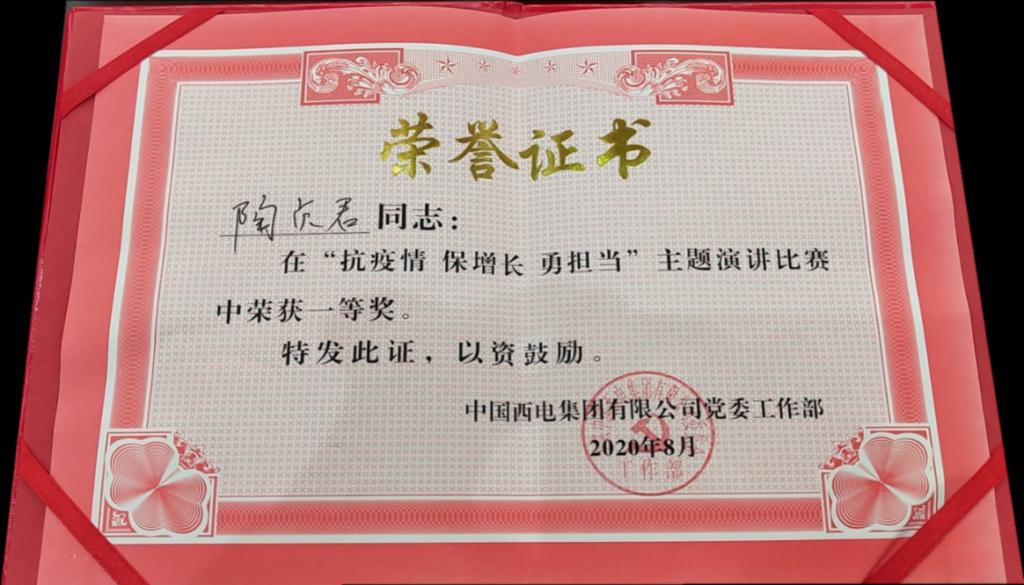 荣誉证书
陶贞君同志：
在“抗疫情 保增长 勇担当”主题演讲比赛
中荣获一等奖。
特发此证，以资鼓励。
中国西电集团有限公司党委工作部
2020年8月
工作部